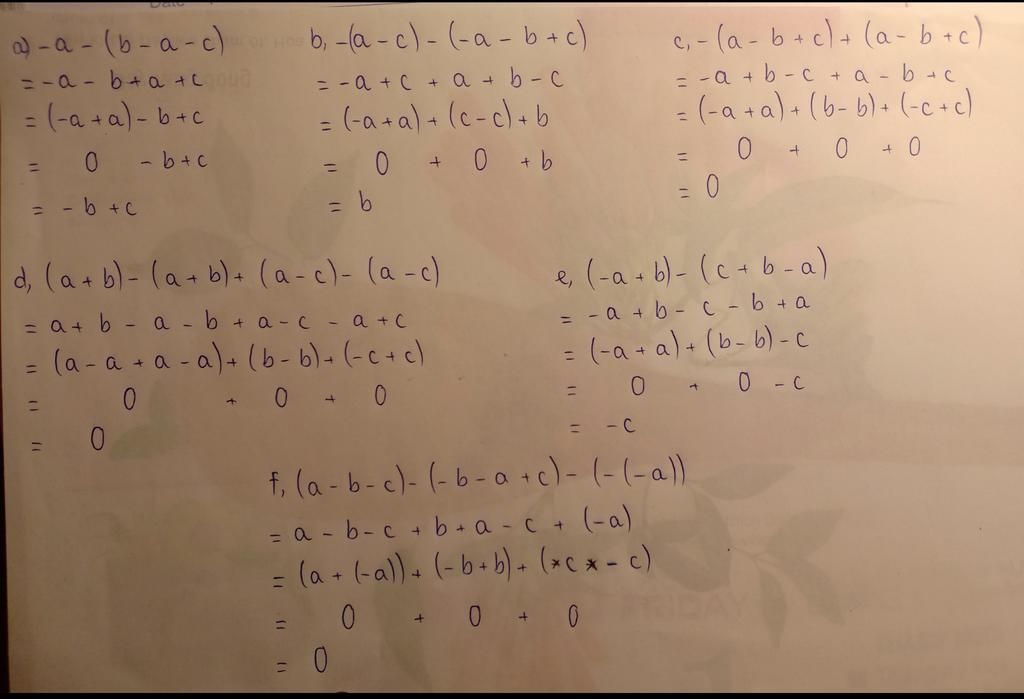 a) -a - (b - a - c)
= -a - b + a + c
= (-a + a) - b + c
= 0 - b + c
= - b + c
b, -(a - c) - (-a - b + c)
= -a + c + a + b - c
= (-a + a) + (c - c) + b
= 0 + 0 + b
= b
c, - (a - b + c) + (a - b + c)
= -a + b - c + a - b + c
= (-a + a) + (b - b) + (-c + c)
= 0 + 0 + 0
= 0
d, (a + b) - (a + b) + (a - c) - (a - c)
= a + b - a - b + a - c - a + c
= (a - a + a - a) + (b - b) + (-c + c)
= 0 + 0 + 0
= 0
e, (-a + b) - (c + b - a)
= -a + b - c - b + a
= (-a + a) + (b - b) - c
= 0 + 0 - c
= -c
f, (a - b - c) - (-b - a + c) - (-(-a))
= a - b - c + b + a - c + (-a)
= (a + (-a)) + (-b + b) + (*c * - c)
= 0 + 0 + 0
= 0